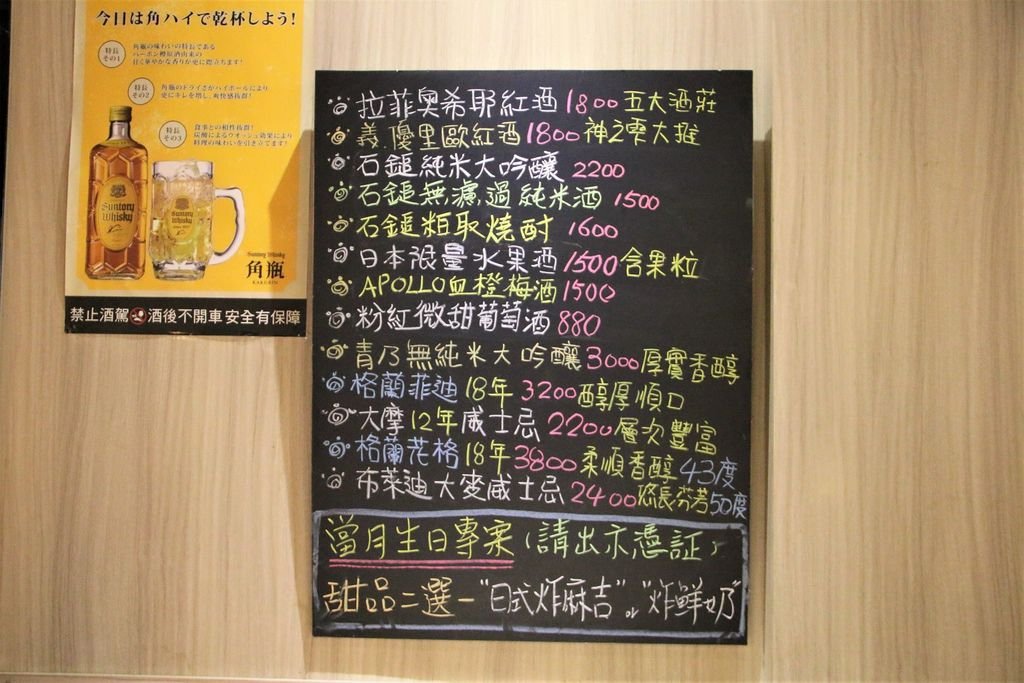 今日は角ハイで乾杯しよう!
特長その1
角瓶の味わいの特長である
バーボン樽原酒由来の
甘く華やかな香りが更に際立ちます!
特長その2
角瓶のドライさがハイボールにより
更にキレを増し、爽快感抜群!
特長その3
食事との相性抜群!
炭酸によるウォッシュ効果により
料理の味わいを引き立てます!
Suntory
Whisky
Suntory
Whisky
Suntory Whisky
角瓶
KAKUBIN
禁止酒駕 酒後不開車 安全有保障
拉菲奧希耶紅酒 1800 五大酒莊
義.優里歐紅酒 1800 神之雫大推
石鎚純米大吟釀 2200
石鎚無濾過純米酒 1500
石鎚粕取燒酎 1600
日本限量水果酒 1500 含果粒
APOLLO血橙梅酒 1500
粉紅微甜葡萄酒 880
青乃無純米大吟釀 3000 厚實香醇
格蘭菲迪 18年 3200 醇厚順口
大摩12年威士忌 2200 層次豐富
格蘭花格 18年 3800 柔順香醇 43度
布萊迪大麥威士忌 2400 悠長芬芳 50度
當月生日專案(請出示憑証)
甜品二選一 "日式炸麻吉" or "炸鮮奶"